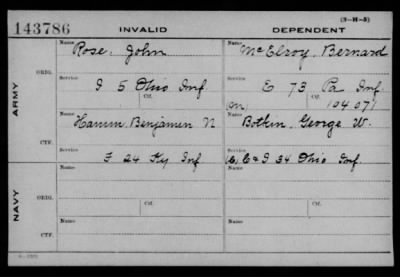 (3-H-5)
143786 INVALID DEPENDENT
Name Rose, John Name McElroy, Bernard
ARMY ORIG. Service I 5 Ohio Inf Service E 73 Pa Inf
Ctf. Ctf. 104071
Name Hamm, Benjamin N Name Botkin, George W.
CTF. Service F 24 Ky Inf Service E & I 34 Ohio Inf
Name Name
NAVY ORIG. Service Service
Ctf. Ctf.
Name Name
CTF. Service Service